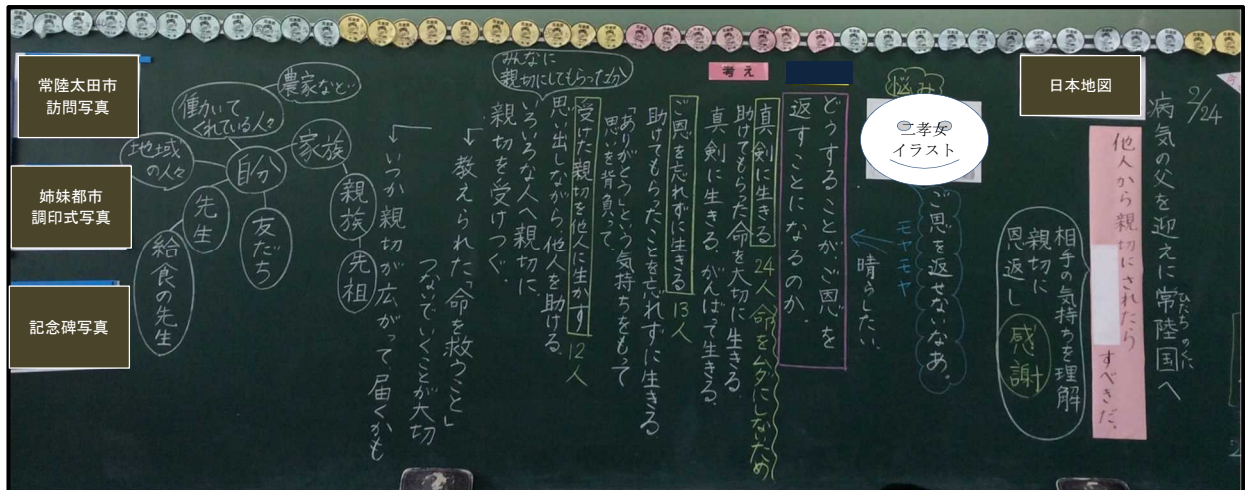 2/24
病気の父を迎えに常陸国へ
ひたちのくに
他人から親切にされたら
すべきだ。
相手の気持ちを理解
親切に
恩返し
感謝
日本地図
悩み
二孝女
イラスト
ご恩を返せないなあ。
モヤモヤ
晴らしたい。
どうすることが、ご恩を
返すことになるのか。
考え
真剣に生きる
24人
命をムダにしないため
助けてもらった命を大切に生きる
真剣に生きる。がんばって生きる。
ご恩を忘れずに生きる
13人
助けてもらったことを忘れずに生きる
「ありがとう」という気持ちをもって
思いを背負って、
受けた親切を他人に生かす
12人
思い出しながら、他人を助ける。
みんなに
親切にしてもらった分
いろいろな人へ親切に
親切を受けつぐ。
教えられた「命を救うこと」
つないでいくことが大切
いつか親切が広がって届くかも
自分
家族
親族
先祖
友だち
先生
給食の先生
地域
の人々
働いて
くれている人々
農家など…
常陸太田市
訪問写真
姉妹都市
調印式写真
記念碑写真